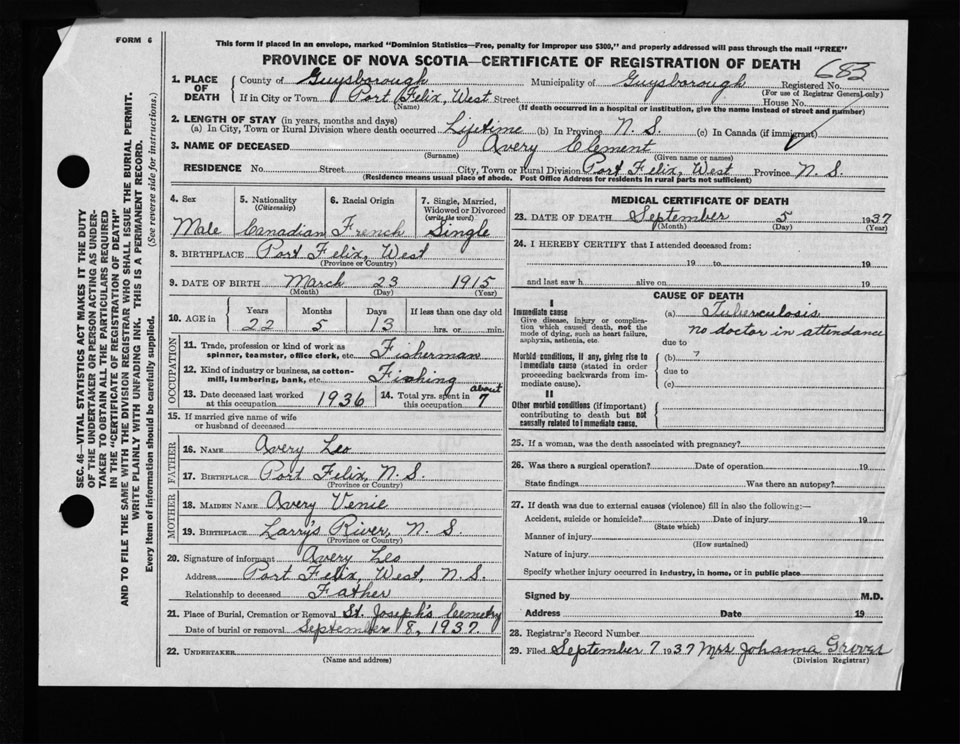 FORM 6
This form if placed in an envelope, marked "Dominion Statistics—Free, penalty for improper use $300," and properly addressed will pass through the mail "FREE"
PROVINCE OF NOVA SCOTIA—CERTIFICATE OF REGISTRATION OF DEATH
683
1. PLACE OF DEATH
County of Guysborough Municipality of Guysborough Registered No.
(For use of Registrar General only)
If in City or Town Port Felix, West Street House No.
(Name) (If death occurred in a hospital or institution, give the name instead of street and number)
2. LENGTH OF STAY (in years, months and days)
(a) In City, Town or Rural Division where death occurred Lifetime (b) In Province N. S. (c) In Canada (if immigrant)
3. NAME OF DECEASED Avery Clement
(Surname) (Given name or names)
RESIDENCE No. Street City, Town or Rural Division Port Felix, West Province N. S.
(Residence means usual place of abode. Post Office Address for residents in rural parts not sufficient)
4. Sex 5. Nationality (Citizenship) 6. Racial Origin 7. Single, Married, Widowed or Divorced (write the word)
Male Canadian French Single
8. BIRTHPLACE Port Felix, West
(Province or Country)
9. DATE OF BIRTH March 23 1915
(Month) (Day) (Year)
10. AGE in Years Months Days If less than one day old
22 5 13 hrs. or min.
OCCUPATION
11. Trade, profession or kind of work as spinner, teamster, office clerk, etc. Fisherman
12. Kind of industry or business, as cotton-mill, lumbering, bank, etc. Fishing
13. Date deceased last worked at this occupation 1936 14. Total yrs. spent in this occupation about 7
15. If married give name of wife or husband of deceased
FATHER
16. NAME Avery Leo
17. BIRTHPLACE Port Felix, N. S.
(Province or Country)
MOTHER
18. MAIDEN NAME Avery Venie
19. BIRTHPLACE Larry's River, N. S.
(Province or Country)
20. Signature of informant Avery Leo
Address Port Felix, West, N. S.
Relationship to deceased Father
21. Place of Burial, Cremation or Removal St. Joseph's Cemetry
Date of burial or removal September 8, 1937.
22. UNDERTAKER
(Name and address)
MEDICAL CERTIFICATE OF DEATH
23. DATE OF DEATH September 5 1937
(Month) (Day) (Year)
24. I HEREBY CERTIFY that I attended deceased from:
19 to 19
and last saw h alive on 19
CAUSE OF DEATH
I
Immediate cause (a) Tuberculosis
Give disease, injury or complication which caused death, not the mode of dying, such as heart failure, asphyxia, asthenia, etc.
no doctor in attendance
due to
Morbid conditions, if any, giving rise to immediate cause (stated in order proceeding backwards from immediate cause).
(b)
due to
(c)
II
Other morbid conditions (if important) contributing to death but not causally related to immediate cause.
25. If a woman, was the death associated with pregnancy?
26. Was there a surgical operation? Date of operation 19
State findings Was there an autopsy?
27. If death was due to external causes (violence) fill in also the following:—
Accident, suicide or homicide? Date of injury 19
(State which)
Manner of injury
(How sustained)
Nature of injury
Specify whether injury occurred in industry, in home, or in public place
Signed by M.D.
Address Date 19
28. Registrar's Record Number
29. Filed September 7 1937 Mrs Johanna
(Division Registrar)
SEC. 46—VITAL STATISTICS ACT MAKES IT THE DUTY
OF THE UNDERTAKER OR PERSON ACTING AS UNDER-
TAKER TO OBTAIN ALL THE PARTICULARS REQUIRED
IN THE "CERTIFICATE OF REGISTRATION OF DEATH"
AND TO FILE THE SAME WITH THE DIVISION REGISTRAR WHO SHALL ISSUE THE BURIAL PERMIT.
WRITE PLAINLY WITH UNFADING INK. THIS IS A PERMANENT RECORD.
Every item of information should be carefully supplied. (See reverse side for instructions.)